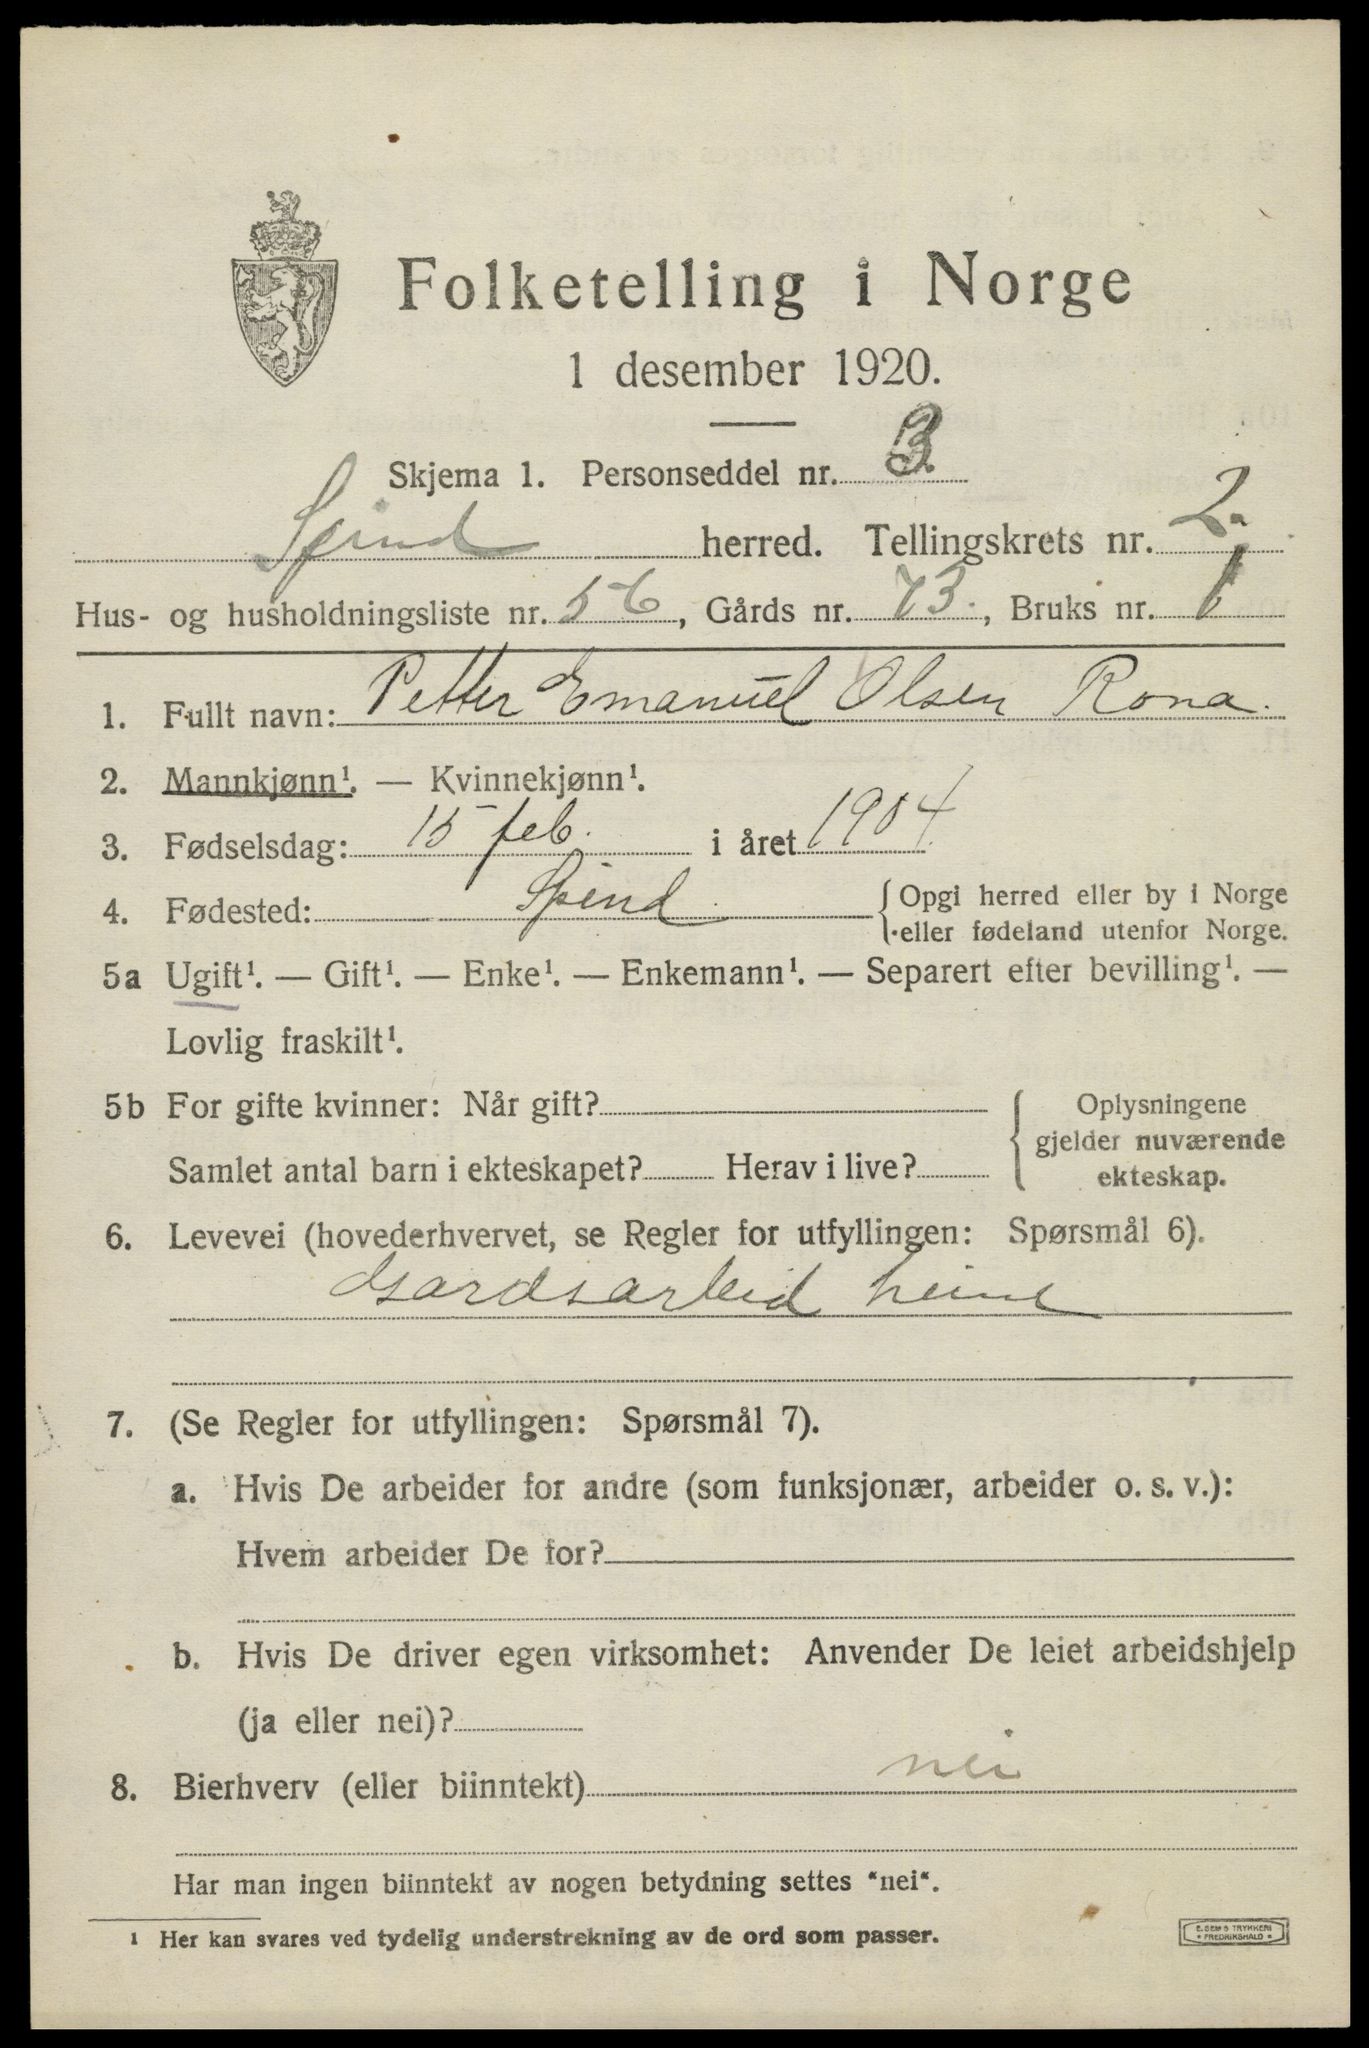 Folketelling i Norge
1 desember 1920.
Skjema 1. Personseddel nr. 3.
Spind herred. Tellingskrets nr. 2.
Hus- og husholdningsliste nr. 56, Gårds nr. 73., Bruks nr. 1
1. Fullt navn: Petter Emanuel Olsen Rona.
2. Mannkjønn¹. — Kvinnekjønn¹.
3. Fødselsdag: 15 feb. i året 1904.
4. Fødested: Spind {Opgi herred eller by i Norge
eller fødeland utenfor Norge.
5a Ugift¹. — Gift¹. — Enke¹. — Enkemann¹. — Separert efter bevilling¹. —
Lovlig fraskilt¹.
5b For gifte kvinner: Når gift? { Oplysningene
gjelder nuværende
Samlet antal barn i ekteskapet? Herav i live? ekteskap.
6. Levevei (hovederhvervet, se Regler for utfyllingen: Spørsmål 6).
Gardsarbeid heime
7. (Se Regler for utfyllingen: Spørsmål 7).
a. Hvis De arbeider for andre (som funksjonær, arbeider o. s. v.):
Hvem arbeider De for?
b. Hvis De driver egen virksomhet: Anvender De leiet arbeidshjelp
(ja eller nei)?
8. Bierhverv (eller biinntekt) nei
Har man ingen biinntekt av nogen betydning settes “nei“.
¹ Her kan svares ved tydelig understrekning av de ord som passer.
E. SEM'S TRYKKERI
• FREDRIKSHALD •